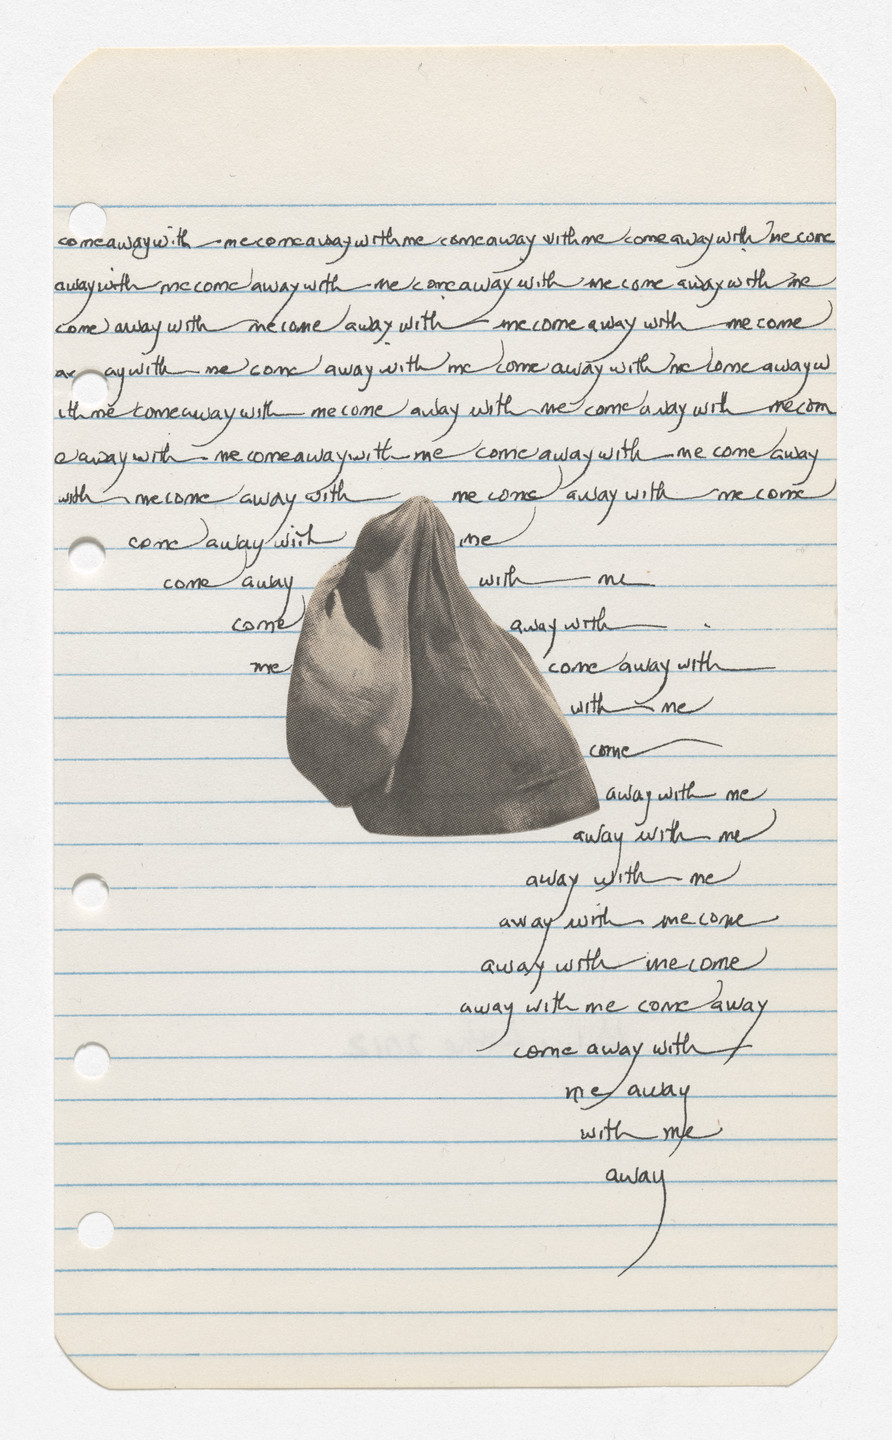 comeawaywith me comeawaywithme comeaway withme comeawaywith me come
awaywith me come away with me comeaway with me come away with me
come away with me come away with me come away with me come
aw ay with me come away with me come away with me come away w
ith me comeaway with me come away with me come away with me com
e away with me comeawaywith me come away with me come away
with me come away with me come away with me come
come away with me
come away with me
come away with
me come away with
with me
come
away with me
away with me
away with me
away with me come
away with me come
away with me come away
come away with
me away
with me
away